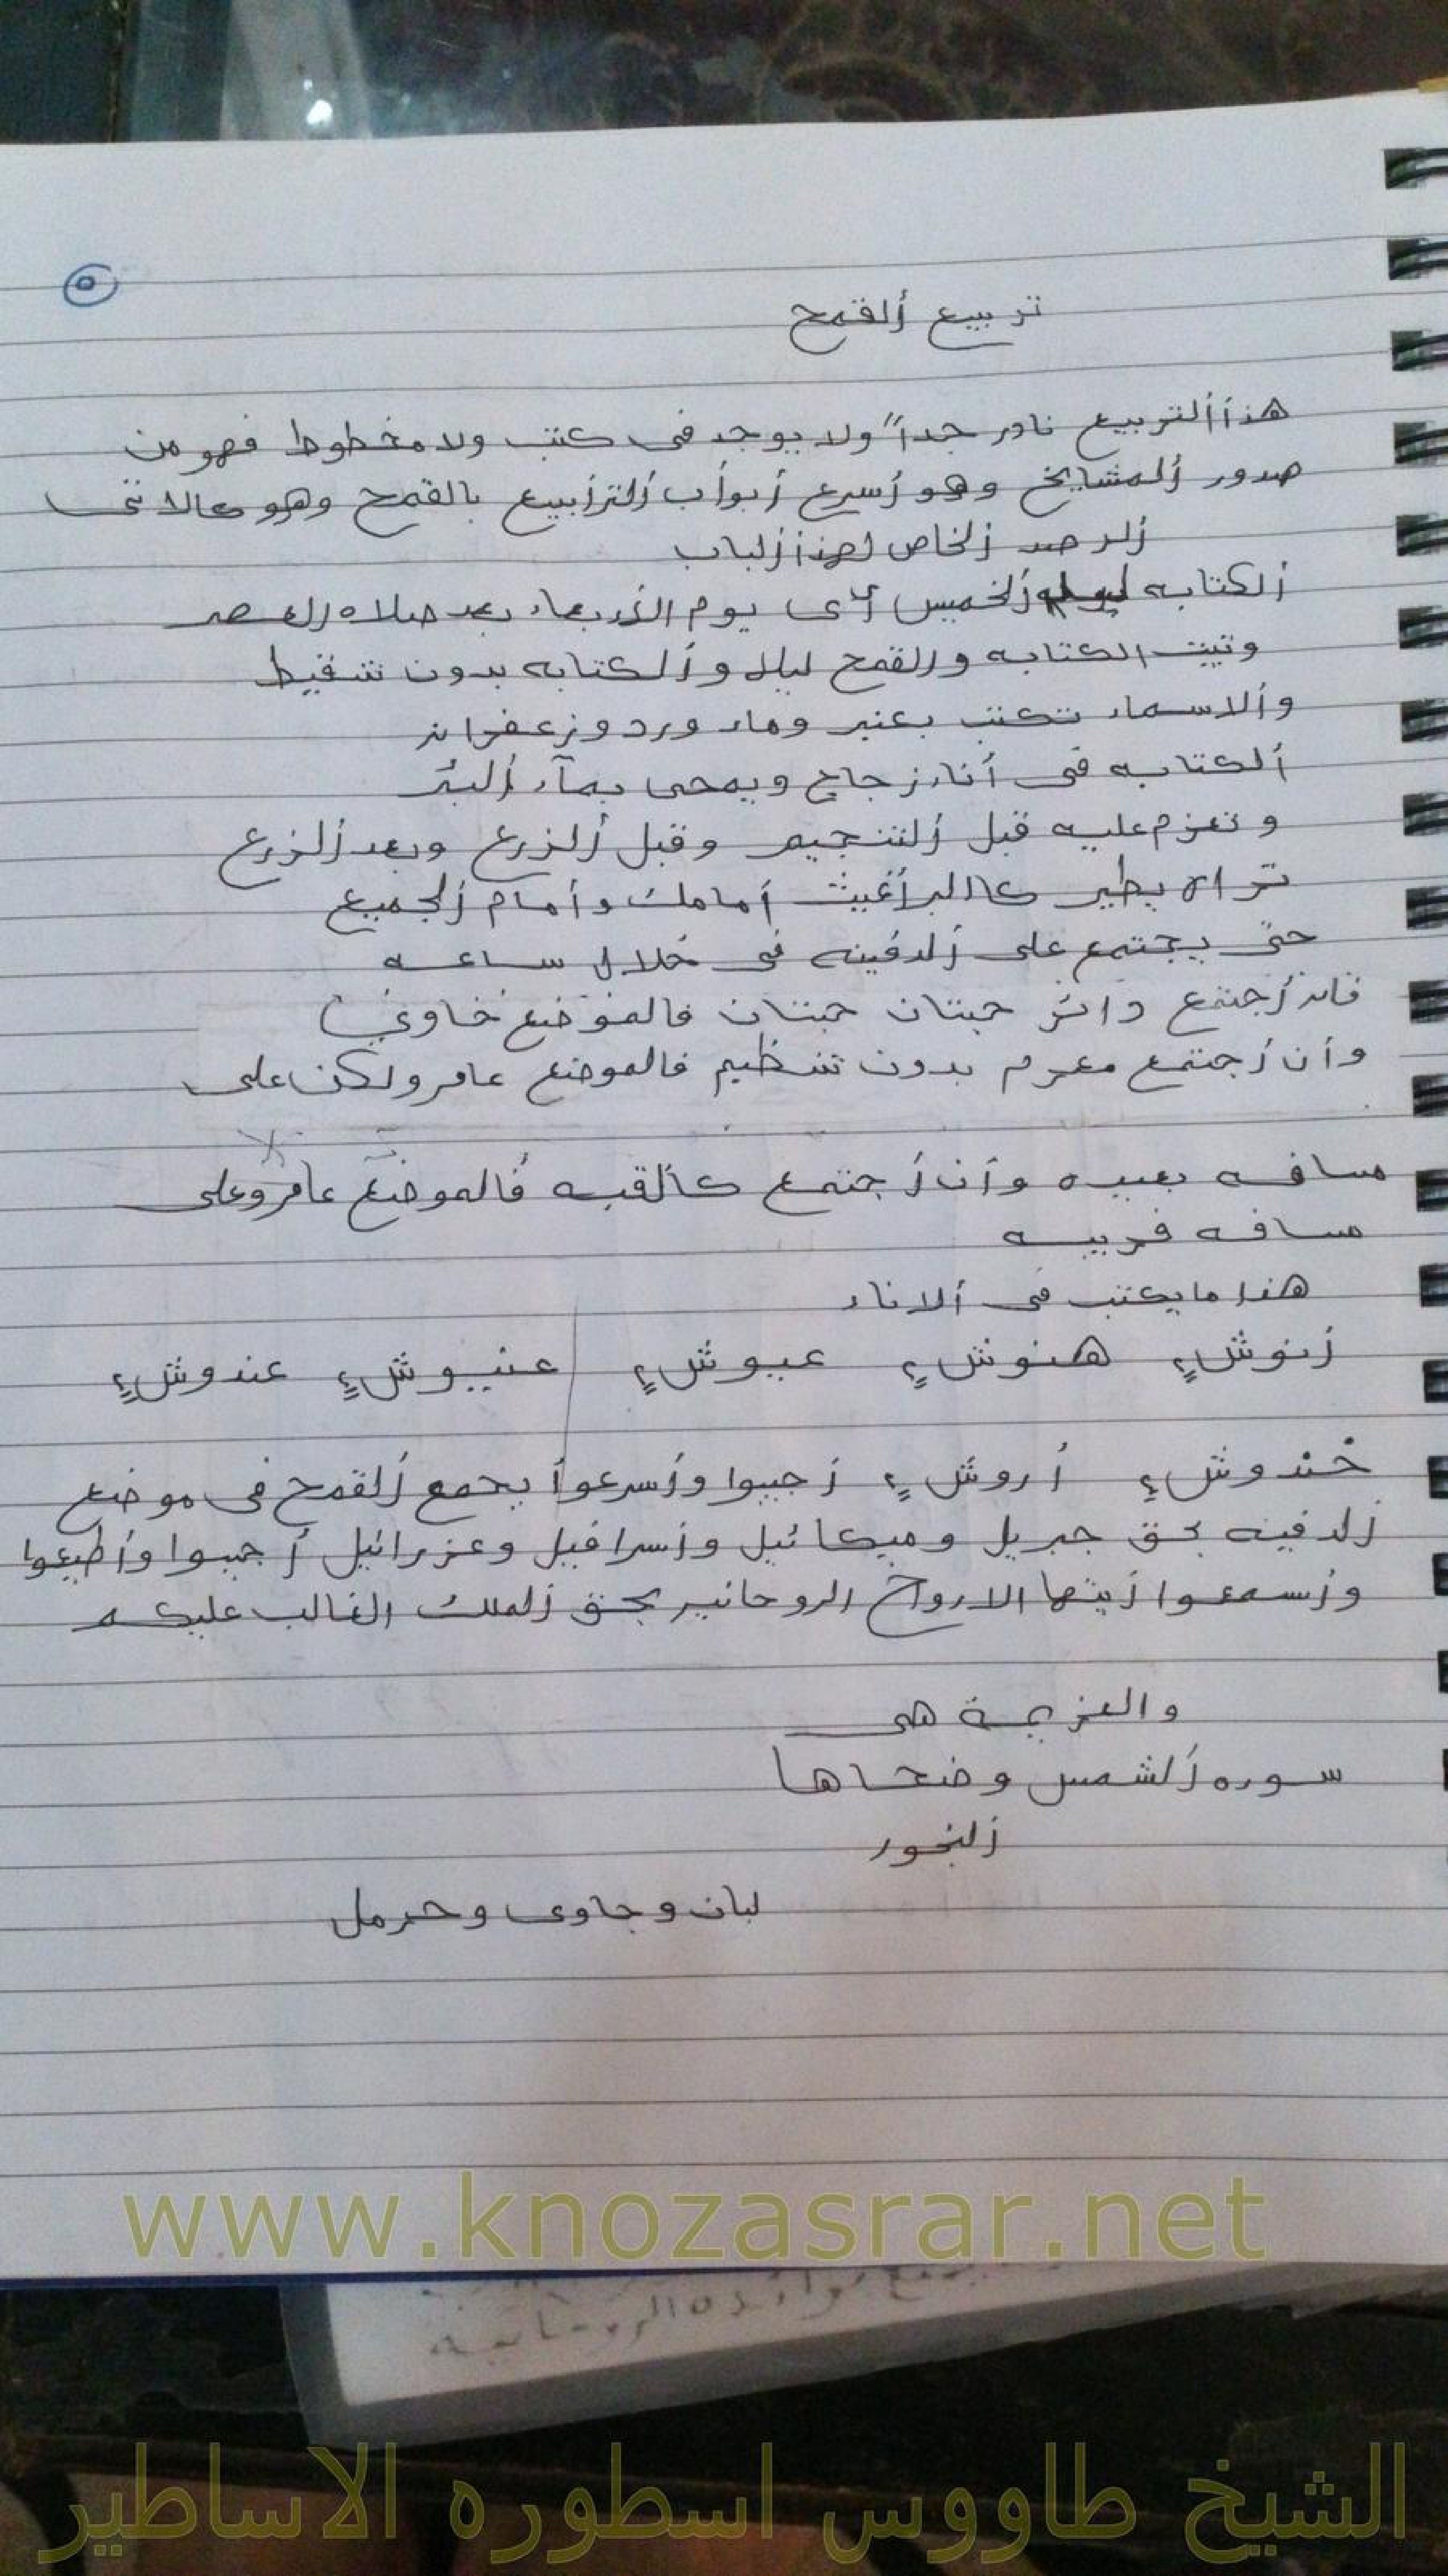 ٥
تربيع ألقمح
هذا ألتربيع نادر جداً ولا يوجد فى كتب ولا مخطوط فهو من
صدور ألمشايخ وهو أسرع أبوأب ألترأبيع بالقمح وهو كالاتى
ألرصد ألخاص لهذا ألباب
ألكتابه ليله ألخميس أى يوم الأربعاء بعد صلاه العصر
وتبيت الكتابه والقمح ليلا وألكتابه بدون تنقيط
وألاسماء تكتب بعنبر وماء ورد وزعفران
ألكتابه فى أناء زجاج ويمحى بمآء ألبئر
وتعزم عليه قبل ألتنجيم وقبل ألزرع وبعد ألزرع
تراه يطير كاالبرأغيث أمامك وأمام ألجميع
حتى يجتمع على ألدفينه فى خلال ساعه
فان أجتمع حبتان حبتان فالموضع خاوى
وأن أجتمع بدون تنظيم فالموضع عامر ولكن على
مسافه بعيده وأن أجتمع كالقبه فالموضع عامر وعلى
مسافه قريبه
هذا ما يكتب فى ألاناء
أنوش هنوش عبوش عنيوش عندوش
خندوش أروش أجيبوا وأسرعوأ بجمع ألقمح فى موضع
ألدفينه بحق جبريل وميكائيل وأسرافيل وعزرائيل أجيبوا وأطيعوا
وأسمعوا أيتها الارواح الروحانيه بحق ألملك الغالب عليكم
والعزيمة هى
سوره ألشمس وضحاها
ألبخور
لبان وجاوى وحرمل
www.knozasrar.net
الشيخ طاووس اسطوره الاساطير